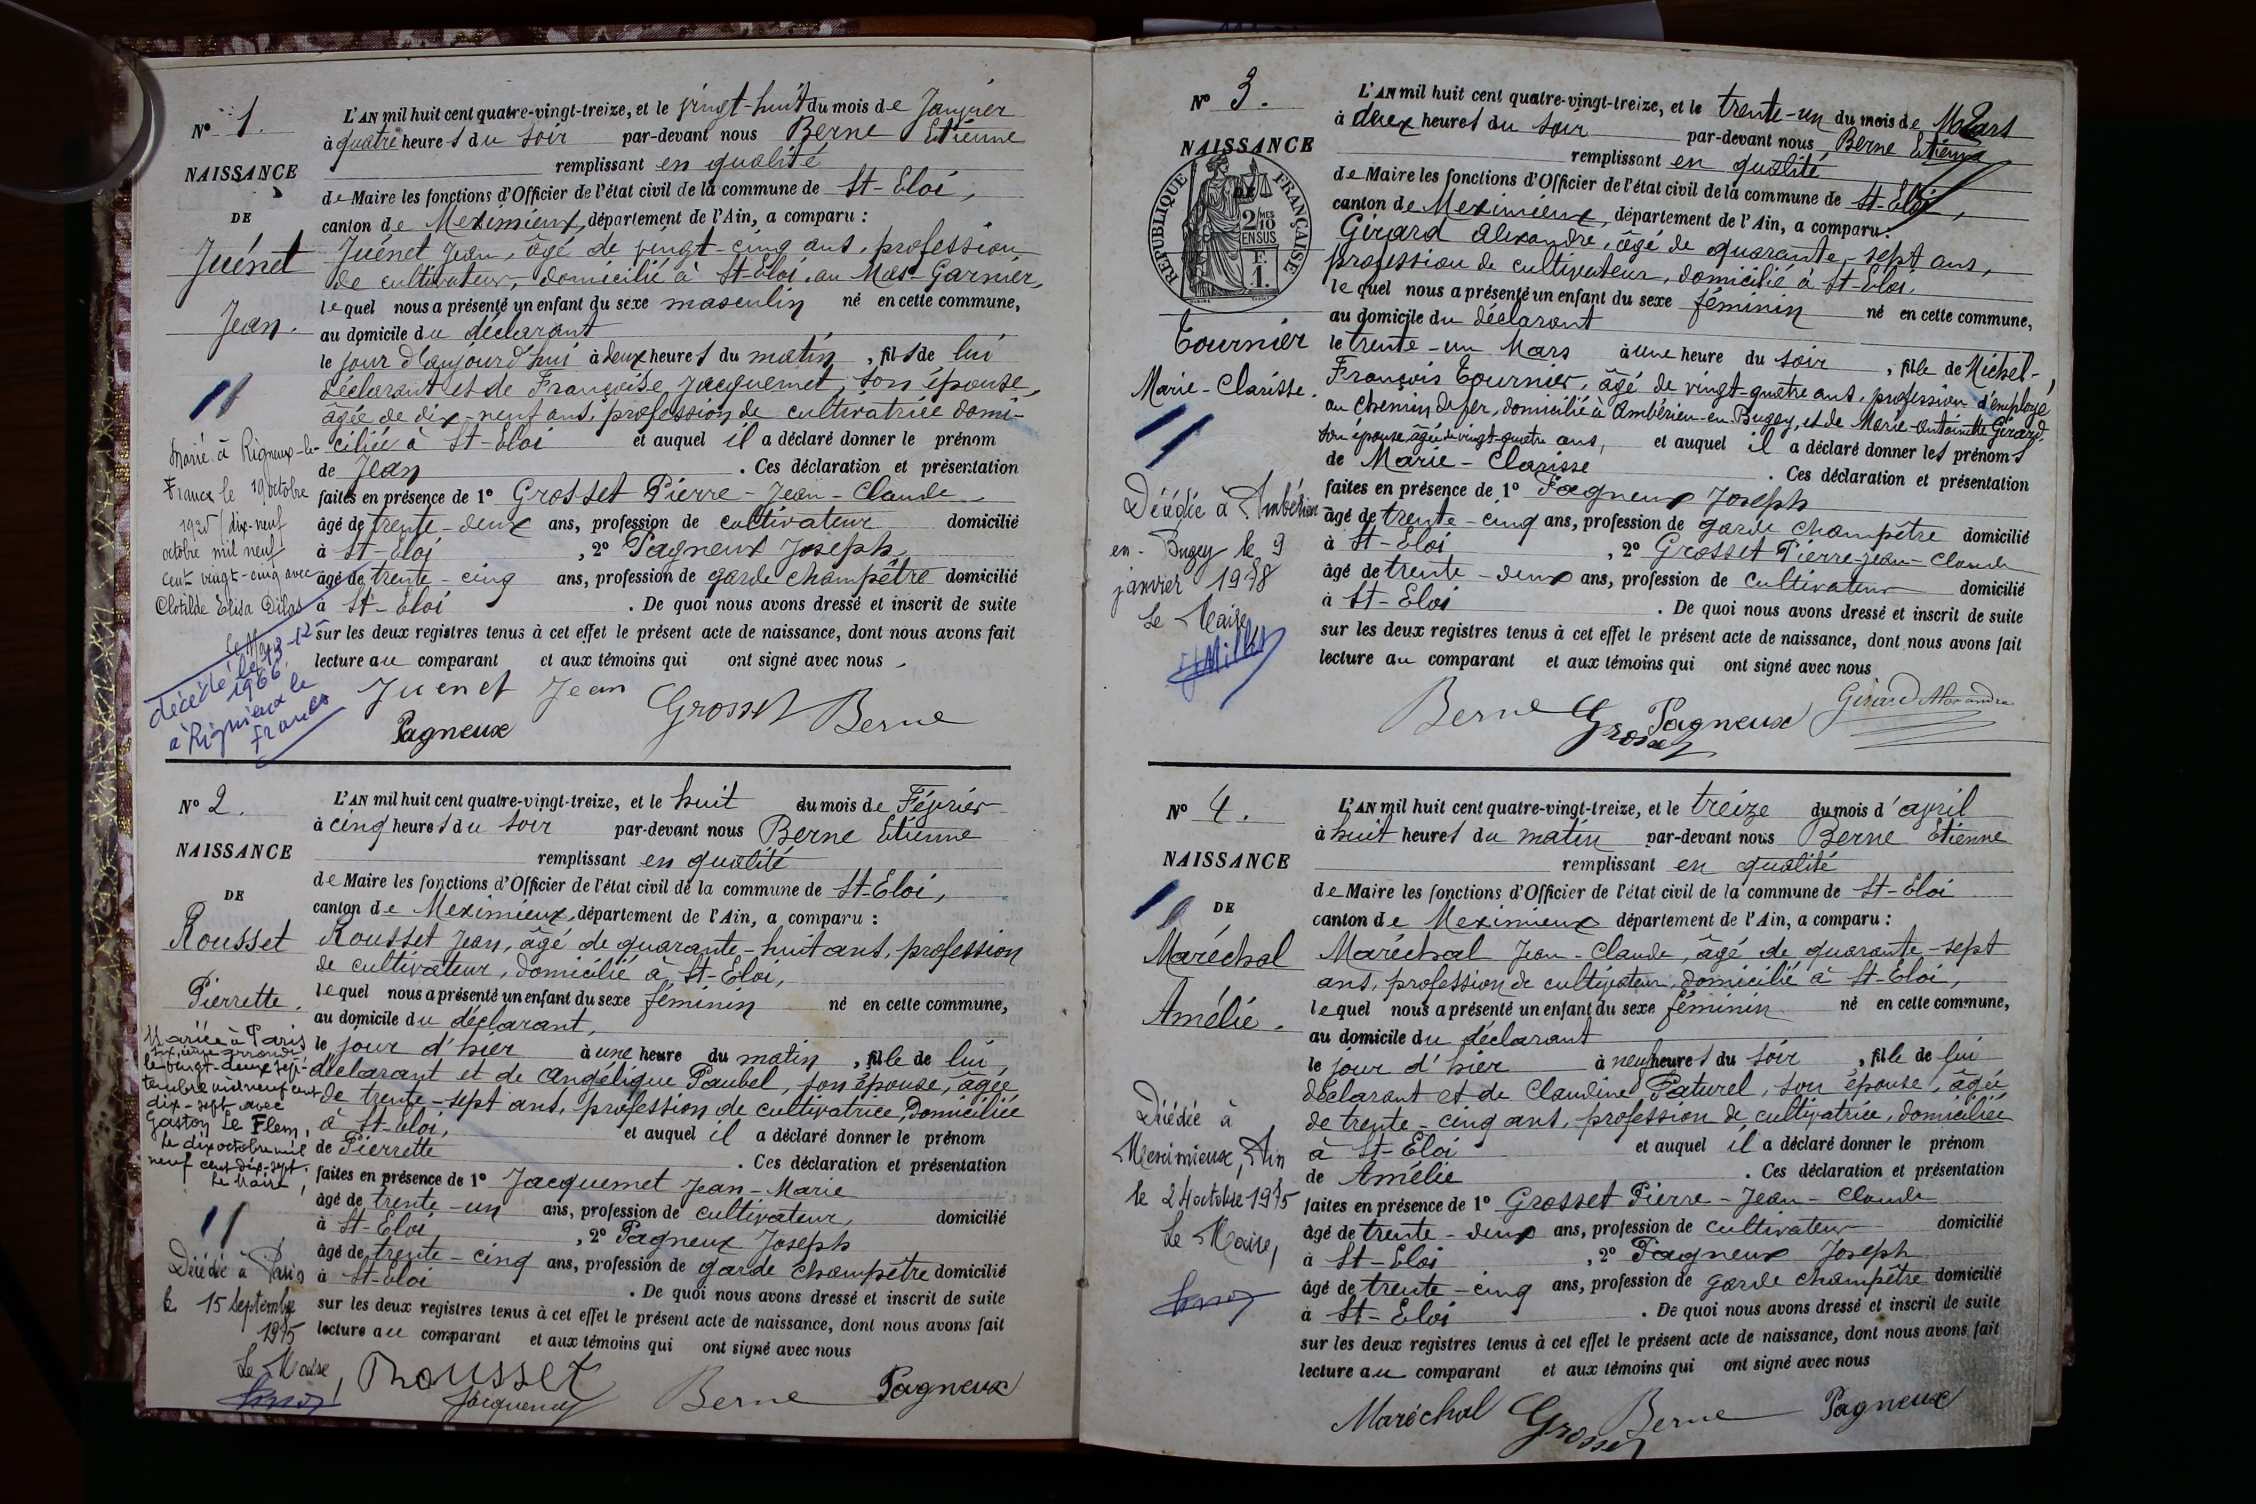 N° 1.
NAISSANCE
DE
Juénet
Jean.
Marié à Rignieux-le-
Franc le 19 octobre
1925 / dix-neuf
octobre mil neuf
cent vingt-cinq avec
Clotilde Elisa Dilas
décédé le 13-12
1966
à Rignieux le
franc
L'AN mil huit cent quatre-vingt-treize, et le vingt-huit du mois de Janvier
à quatre heures du soir par-devant nous Berne Etienne
remplissant en qualité
de Maire les fonctions d'Officier de l'état civil de la commune de St-Eloi,
canton de Meximieux, département de l'Ain, a comparu :
Juénet Jean, âgé de vingt-cinq ans, profession
de cultivateur, domicilié à St-Eloi, au Mas-Garnier,
lequel nous a présenté un enfant du sexe masculin né en cette commune,
au domicile du déclarant
le jour d'aujourd'hui à deux heures du matin, fils de lui
déclarant et de Françoise Jacquemet, son épouse,
âgée de dix-neuf ans, profession de cultivatrice domi-
ciliée à St-Eloi et auquel il a déclaré donner le prénom
de Jean . Ces déclaration et présentation
faites en présence de 1° Grosset Pierre-Jean-Claude
âgé de trente-deux ans, profession de cultivateur domicilié
à St-Eloi, 2° Pagneux Joseph
âgé de trente-cinq ans, profession de garde champêtre domicilié
à St-Eloi . De quoi nous avons dressé et inscrit de suite
sur les deux registres tenus à cet effet le présent acte de naissance, dont nous avons fait
lecture au comparant et aux témoins qui ont signé avec nous.
Juenet Jean Grosset Berne
Pagneux
N° 2.
NAISSANCE
DE
Rousset
Pierrette.
Mariée à Paris
le vingt-deux sep-
tembre mil neuf cent
dix-sept avec
Gaston Le Flem,
Le dix octobre mil
neuf cent dix-sept.
Le Maire,
Décédée à Paris
le 15 Septembre
1975
Le Maire,
L'AN mil huit cent quatre-vingt-treize, et le huit du mois de Février
à cinq heures du soir par-devant nous Berne Etienne
remplissant en qualité
de Maire les fonctions d'Officier de l'état civil de la commune de St-Eloi,
canton de Meximieux, département de l'Ain, a comparu :
Rousset Jean, âgé de quarante-huit ans, profession
de cultivateur, domicilié à St-Eloi,
lequel nous a présenté un enfant du sexe féminin né en cette commune,
au domicile du déclarant,
le jour d'hier à une heure du matin, fille de lui
déclarant et de Angélique Paubel, son épouse, âgée
de trente-sept ans, profession de cultivatrice, domiciliée
à St-Eloi, et auquel il a déclaré donner le prénom
de Pierrette . Ces déclaration et présentation
faites en présence de 1° Jacquemet Jean-Marie
âgé de trente-un ans, profession de cultivateur, domicilié
à St-Eloi, 2° Pagneux Joseph
âgé de trente-cinq ans, profession de garde champêtre domicilié
à St-Eloi . De quoi nous avons dressé et inscrit de suite
sur les deux registres tenus à cet effet le présent acte de naissance, dont nous avons fait
lecture au comparant et aux témoins qui ont signé avec nous
Rousset Jacquemet Berne Pagneux
N° 3.
NAISSANCE
RÉPUBLIQUE FRANÇAISE
2 MES
10
EN SUS
F.
1.
Tournier
Marie-Clarisse.
Décédée à Ambérieu
en-Bugey le 9
janvier 1978
Le Maire,
L'AN mil huit cent quatre-vingt-treize, et le trente-un du mois de Mars
à deux heures du soir par-devant nous Berne Etienne
remplissant en qualité
de Maire les fonctions d'Officier de l'état civil de la commune de St-Eloi,
canton de Meximieux, département de l'Ain, a comparu :
Girard Alexandre, âgé de quarante-sept ans,
profession de cultivateur, domicilié à St-Eloi,
lequel nous a présenté un enfant du sexe féminin né en cette commune,
au domicile du déclarant
le trente-un Mars à une heure du soir, fille de Michel-
François Tournier, âgé de vingt-quatre ans, profession d'employé
au chemin de fer, domicilié à Ambérieu-en-Bugey, et de Marie-Antoinette Girard
son épouse, âgée de vingt-quatre ans, et auquel il a déclaré donner les prénoms
de Marie-Clarisse . Ces déclaration et présentation
faites en présence de 1° Pagneux Joseph
âgé de trente-cinq ans, profession de garde champêtre domicilié
à St-Eloi, 2° Grosset Pierre-Jean-Claude
âgé de trente-deux ans, profession de cultivateur domicilié
à St-Eloi . De quoi nous avons dressé et inscrit de suite
sur les deux registres tenus à cet effet le présent acte de naissance, dont nous avons fait
lecture au comparant et aux témoins qui ont signé avec nous
Berne Grosset Pagneux Girard Alexandre
N° 4.
NAISSANCE
DE
Maréchal
Amélie.
Décédée à
Meximieux, Ain
le 24 octobre 1975
Le Maire,
L'AN mil huit cent quatre-vingt-treize, et le treize du mois d'avril
à huit heures du matin par-devant nous Berne Etienne
remplissant en qualité
de Maire les fonctions d'Officier de l'état civil de la commune de St-Eloi
canton de Meximieux département de l'Ain, a comparu :
Maréchal Jean-Claude, âgé de quarante-sept
ans, profession de cultivateur, domicilié à St-Eloi,
lequel nous a présenté un enfant du sexe féminin né en cette commune,
au domicile du déclarant
le jour d'hier à neuf heures du soir, fille de lui
déclarant et de Claudine Paturel, son épouse, âgée
de trente-cinq ans, profession de cultivatrice, domiciliée
à St-Eloi et auquel il a déclaré donner le prénom
de Amélie . Ces déclaration et présentation
faites en présence de 1° Grosset Pierre-Jean-Claude
âgé de trente-deux ans, profession de cultivateur domicilié
à St-Eloi, 2° Pagneux Joseph
âgé de trente-cinq ans, profession de garde champêtre domicilié
à St-Eloi . De quoi nous avons dressé et inscrit de suite
sur les deux registres tenus à cet effet le présent acte de naissance, dont nous avons fait
lecture au comparant et aux témoins qui ont signé avec nous
Maréchal Grosset Berne Pagneux